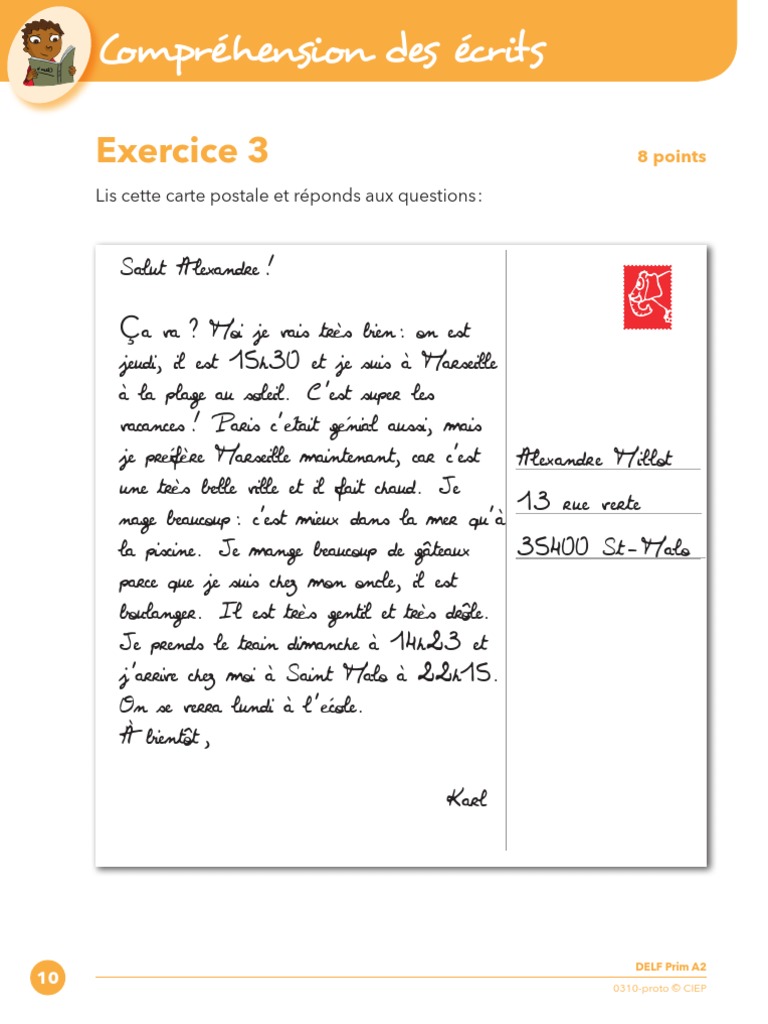 Compréhension des écrits
Exercice 3
8 points
Lis cette carte postale et réponds aux questions :
Salut Alexandre !
Ça va ? Moi je vais très bien : on est
jeudi, il est 15h30 et je suis à Marseille
à la plage au soleil. C'est super les
vacances ! Paris c'était génial aussi, mais
je préfère Marseille maintenant, car c'est
une très belle ville et il fait chaud. Je
nage beaucoup : c'est mieux dans la mer qu'à
la piscine. Je mange beaucoup de gâteaux
parce que je suis chez mon oncle, il est
boulanger. Il est très gentil et très drôle.
Je prends le train dimanche à 14h23 et
j'arrive chez moi à Saint Malo à 22h15.
On se verra lundi à l'école.
À bientôt,
Karl
Alexandre Millot
13 rue verte
35400 St-Malo
10
DELF Prim A2
0310-proto © CIEP